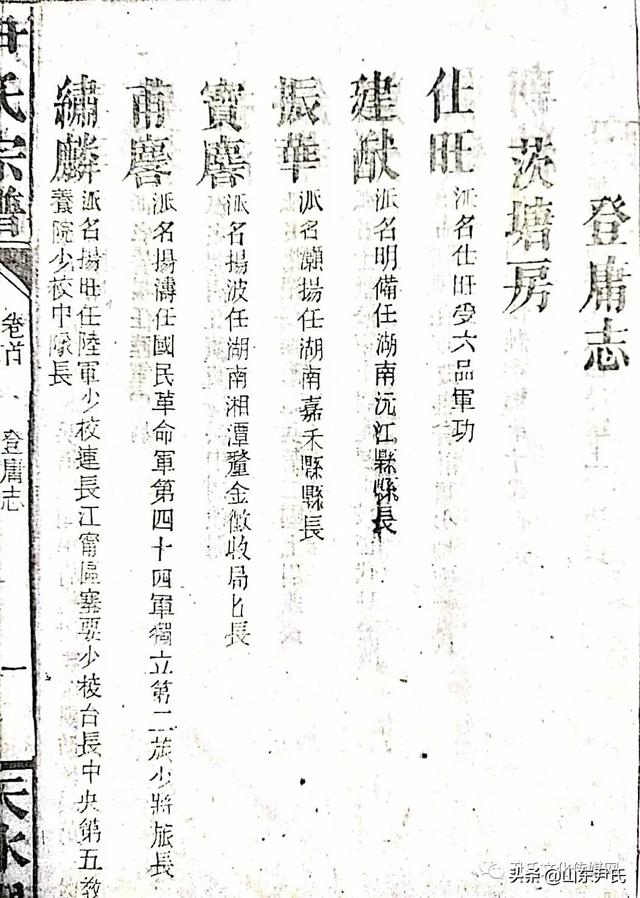 登庸志
茨塘房
仕旺 派名仕旺受六品軍功
建猷 派名明備任湖南沅江縣縣長
振華 派名灝揚任湖南嘉禾縣縣長
寶麐 派名揚波任湖南湘潭釐金徵收局匕長
甫麐 派名揚濤任國民革命軍第四十四軍獨立第二旅少將旅長
繡麟 派名揚旺任陸軍少校連長江甯區要塞少校台長中央第五教
養院少校中隊長
尹氏宗譜
卷首
登庸志
一
天水
尹氏文化传媒网
头条 @山东尹氏